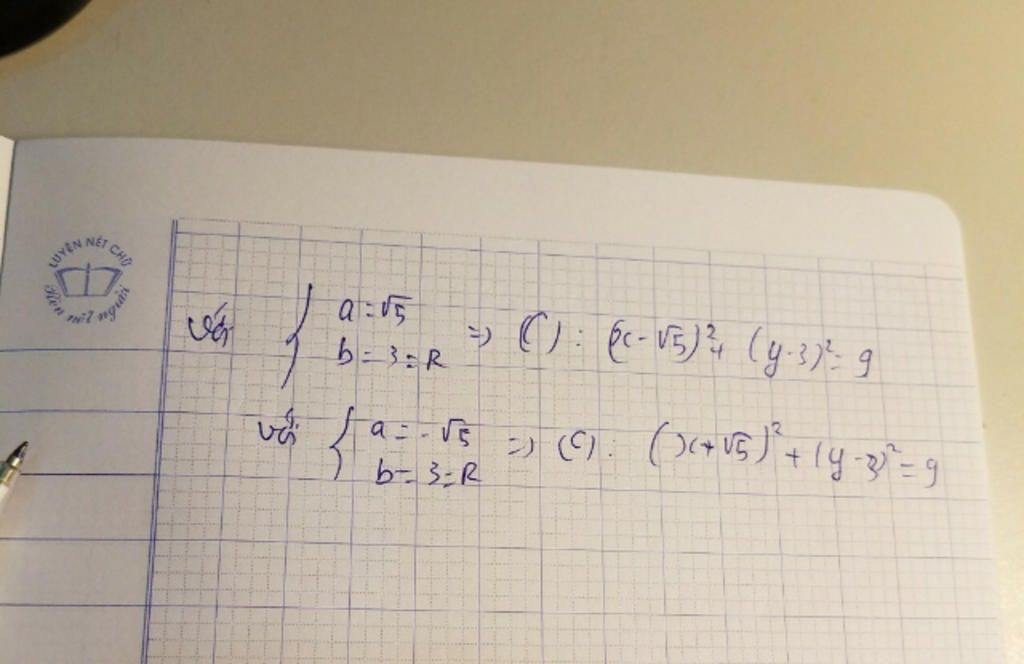 LUYỆN NÉT CHỮ
Rèn nết người
với { a = √5
b = 3 = R
=> (C) : (x - √5)² + (y - 3)² = 9
với { a = -√5
b = 3 = R
=> (C) : (x + √5)² + (y - 3)² = 9